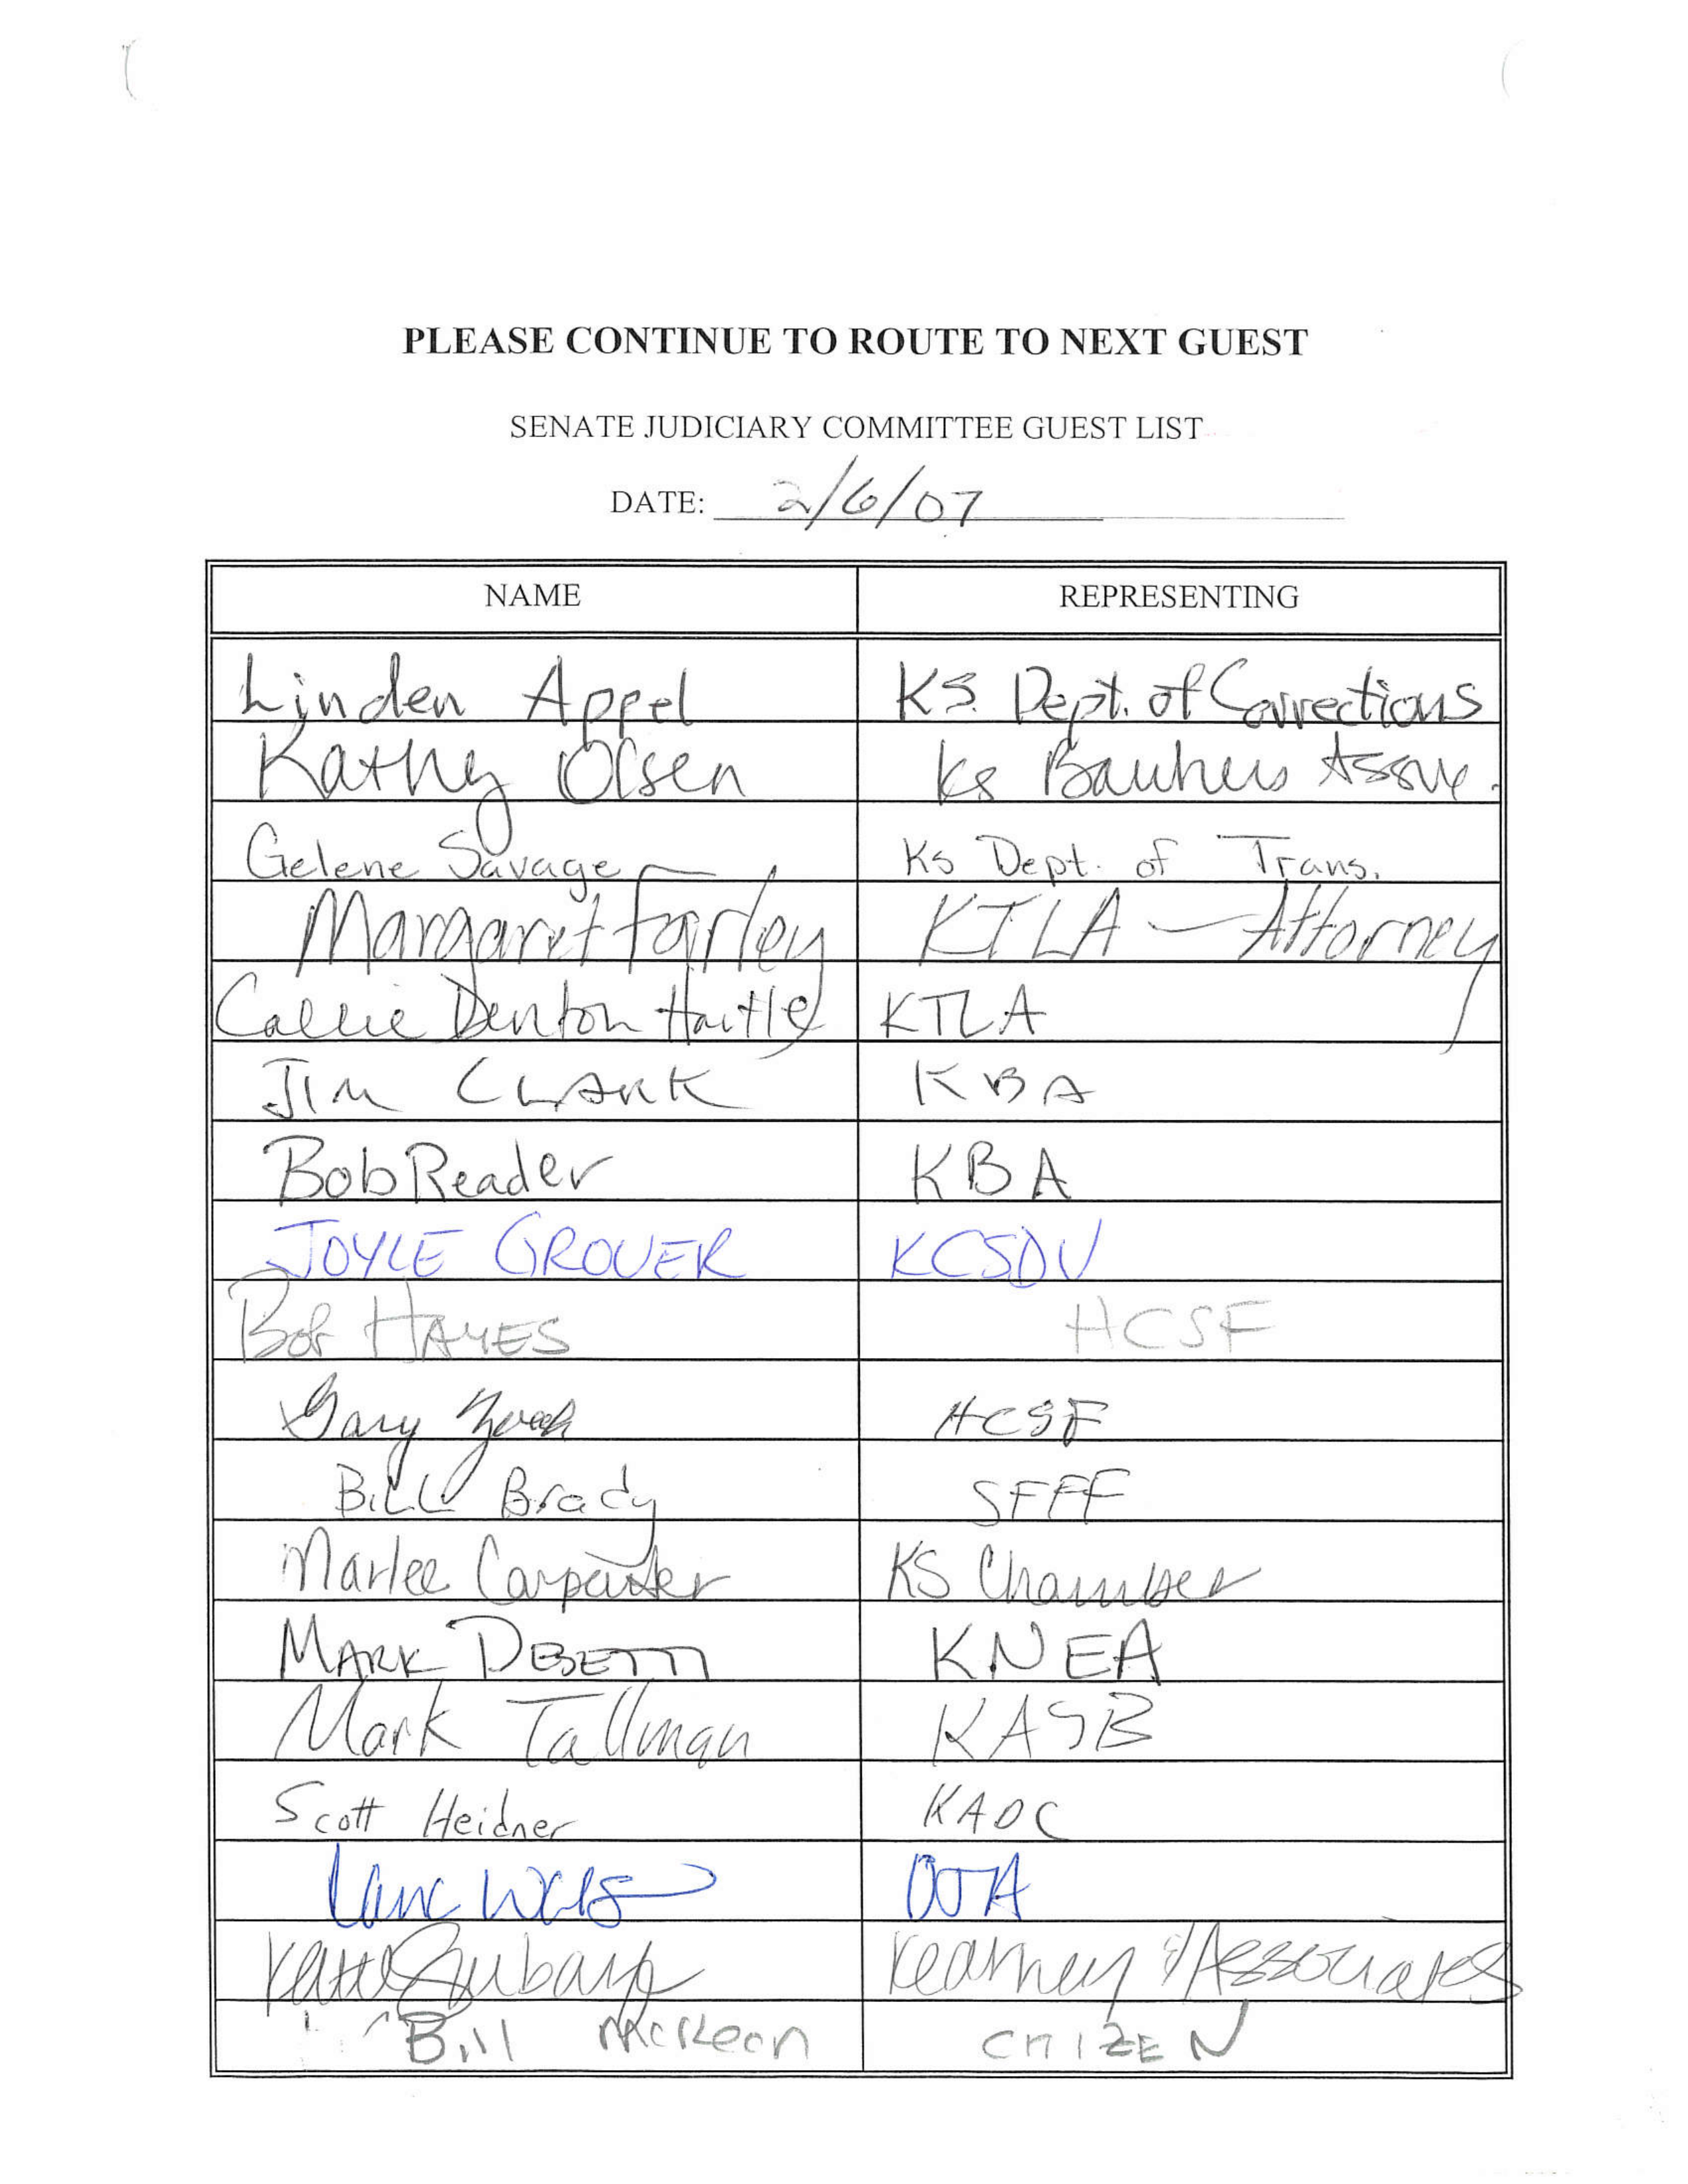 PLEASE CONTINUE TO ROUTE TO NEXT GUEST
SENATE JUDICIARY COMMITTEE GUEST LIST
DATE: 2/6/07
NAME REPRESENTING
Linden Appel KS. Dept. of Corrections
Kathy Olsen Ks Bankers Assn.
Gelene Savage Ks Dept. of Trans.
Margaret Farley KTLA - Attorney
Callie Denton Hartle KTLA
JIM CLARK KBA
Bob Reader KBA
JOYCE GROVER KCSDV
Bob HAYES HCSF
Gary HCSF
BiLL Brady SFFF
Marlee Carpenter KS Chamber
MARK DESETTI KNEA
Mark Tallman KASB
Scott Heidner KADC
OJA
Kearney & Associates
Bill McKeon CITIZEN